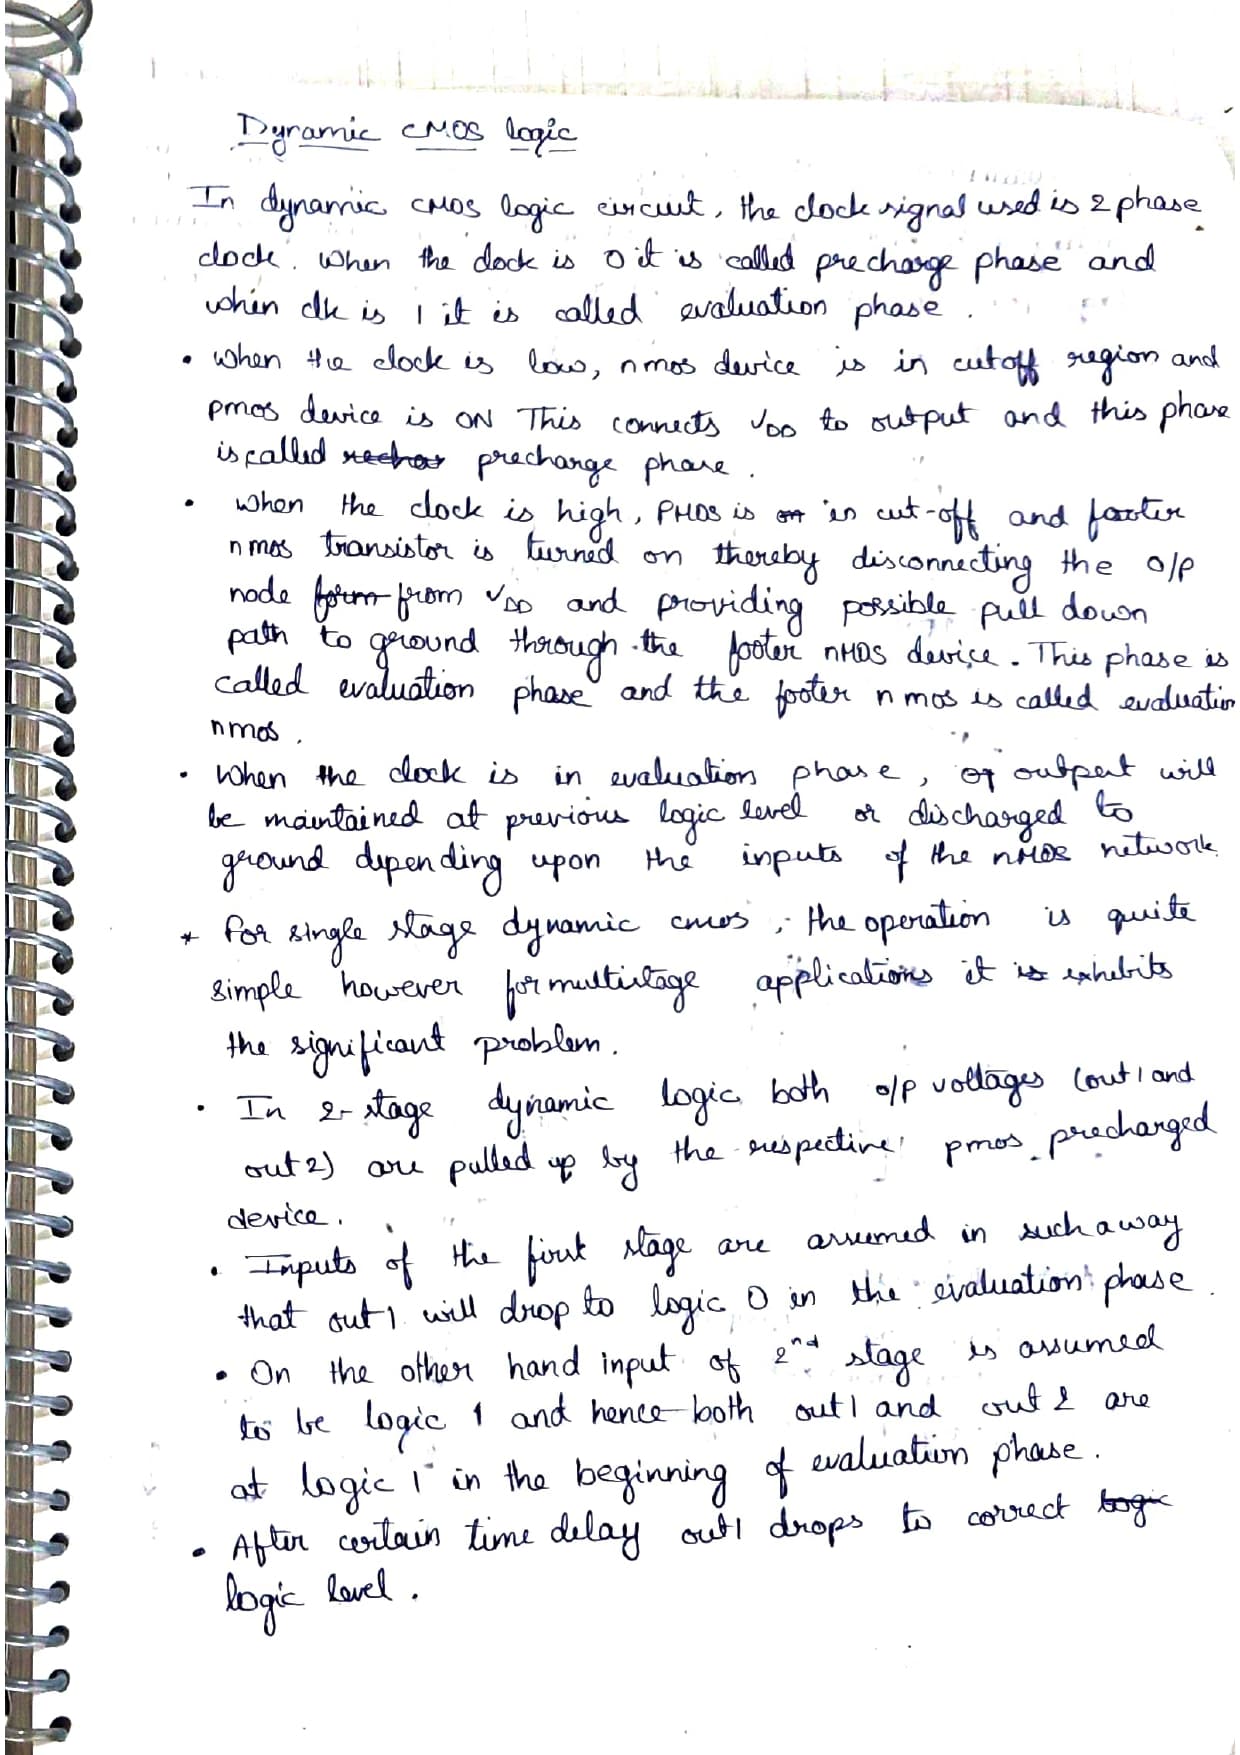 Dynamic CMOS logic
In dynamic CMOS logic circuit, the clock signal used is 2 phase
clock. When the clock is 0 it is called precharge phase and
when clk is 1 it is called evaluation phase.
• When the clock is low, nmos device is in cutoff region and
pmos device is ON This connects VDD to output and this phase
is called precharge phase.
• When the clock is high, PMOS is in cut-off and footer
nmos transistor is turned on thereby disconnecting the o/p
node from VDD and providing possible pull down
path to ground through the footer nMOS device. This phase is
called evaluation phase and the footer nmos is called evaluation
nmos.
• When the clock is in evaluation phase, output will
be maintained at previous logic level or discharged to
ground depending upon the inputs of the nMOS network.
* for single stage dynamic cmos, the operation is quite
simple however for multistage applications it exhibits
the significant problem.
• In 2-stage dynamic logic both o/p voltages (out1 and
out2) are pulled up by the respective pmos precharged
device.
• Inputs of the first stage are assumed in such a way
that out1 will drop to logic 0 in the evaluation phase.
• On the other hand input of 2nd stage is assumed
to be logic 1 and hence both out1 and out2 are
at logic 1 in the beginning of evaluation phase.
• After certain time delay out1 drops to correct
logic level.